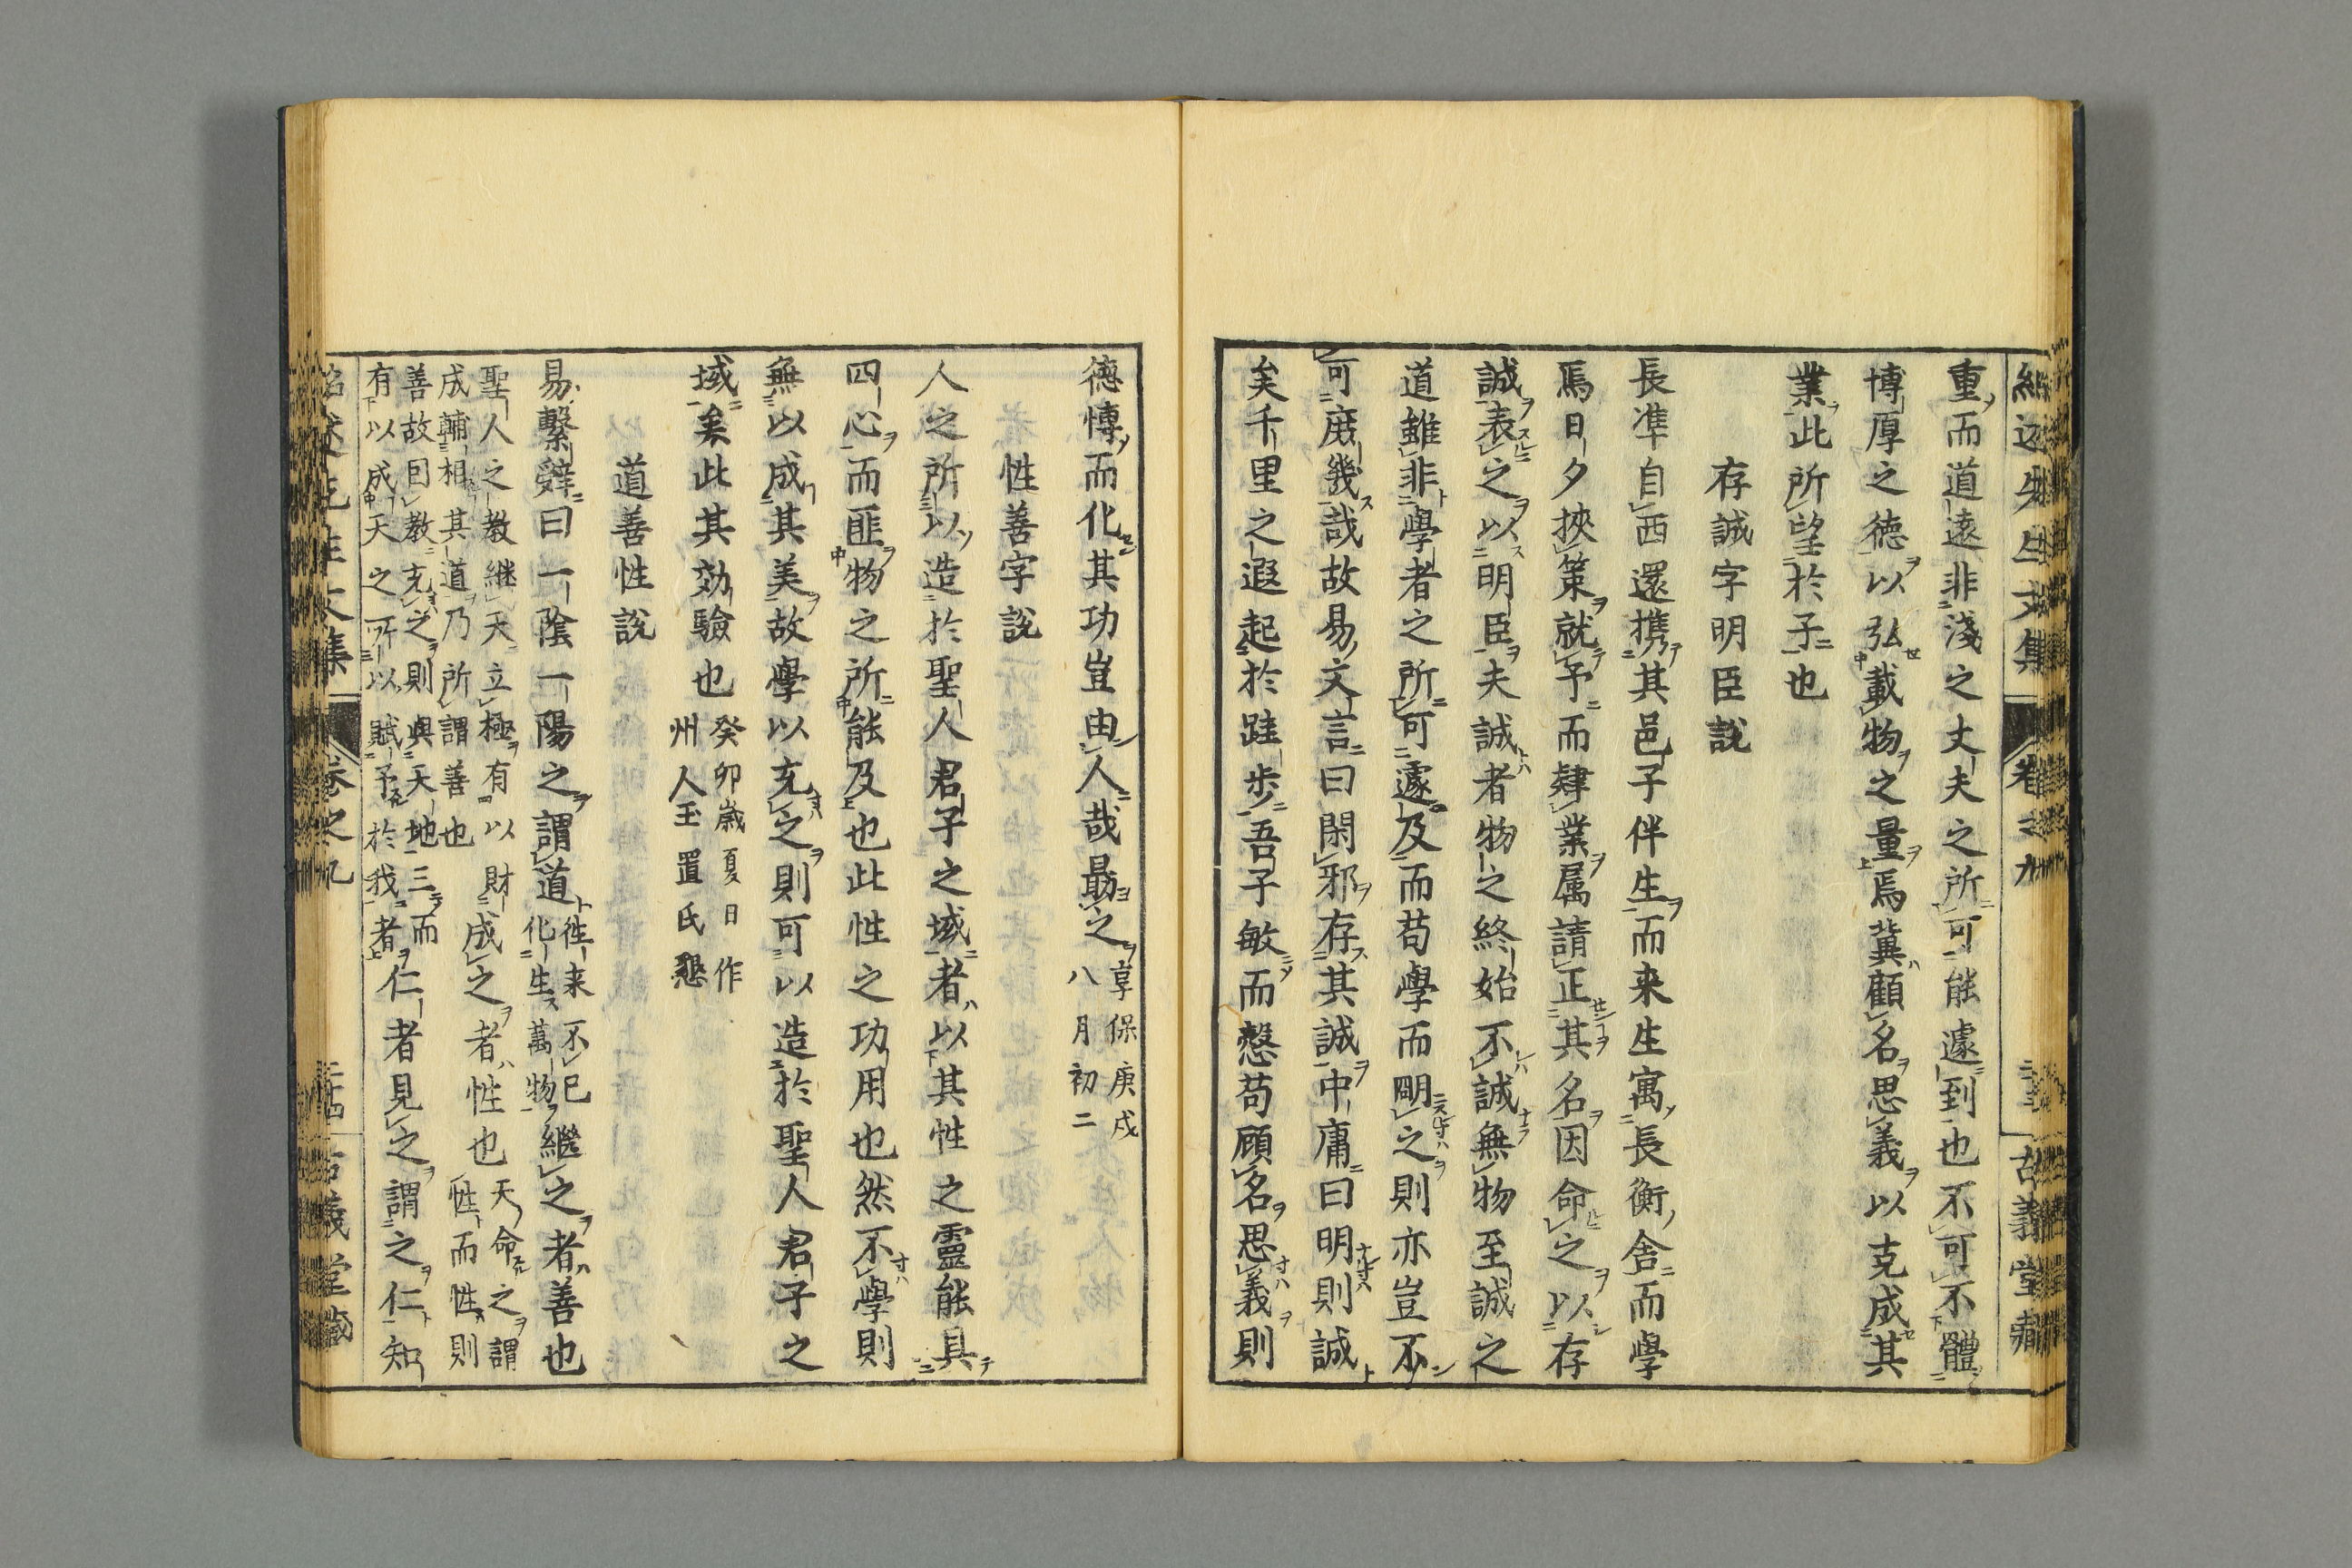 重而道遠非淺之丈夫之所可能遽到也不可不體
博厚之德以弘載物之量焉冀顧名思義以克成其
業此所望於子也
存誠字明臣說
長準自西還携其邑子伴生而来生寓長衡舍而學
焉日夕挾策就予而肄業属請正其名因命之以存
誠表之以明臣夫誠者物之終始不誠無物至誠之
道雖非學者之所可遽及而苟學而明之則亦豈不
可庶幾哉故易文言曰閑邪存其誠中庸曰明則誠
矣千里之遐起於跬歩吾子敏而愨苟顧名思義則
德博而化其功豈由人哉勗之享保庚戌
八月初二
性善字說
人之所以造於聖人君子之域者以其性之靈能具
四心而匪物之所能及也此性之功用也然不學則
無以成其美故學以充之則可以造於聖人君子之
域矣此其効驗也癸卯歳夏日作
州人玉置氏懇
道善性說
易繫辞曰一陰一陽之謂道徃来不已
化生萬物継之者善也
聖人之教継天立極有以財
成輔相其道乃所謂善也成之者性也天命之謂
性而性則
善故因教充之則與天地三而
有以成天之所以賦予於我者仁者見之謂之仁知
卷之九
古義堂藏